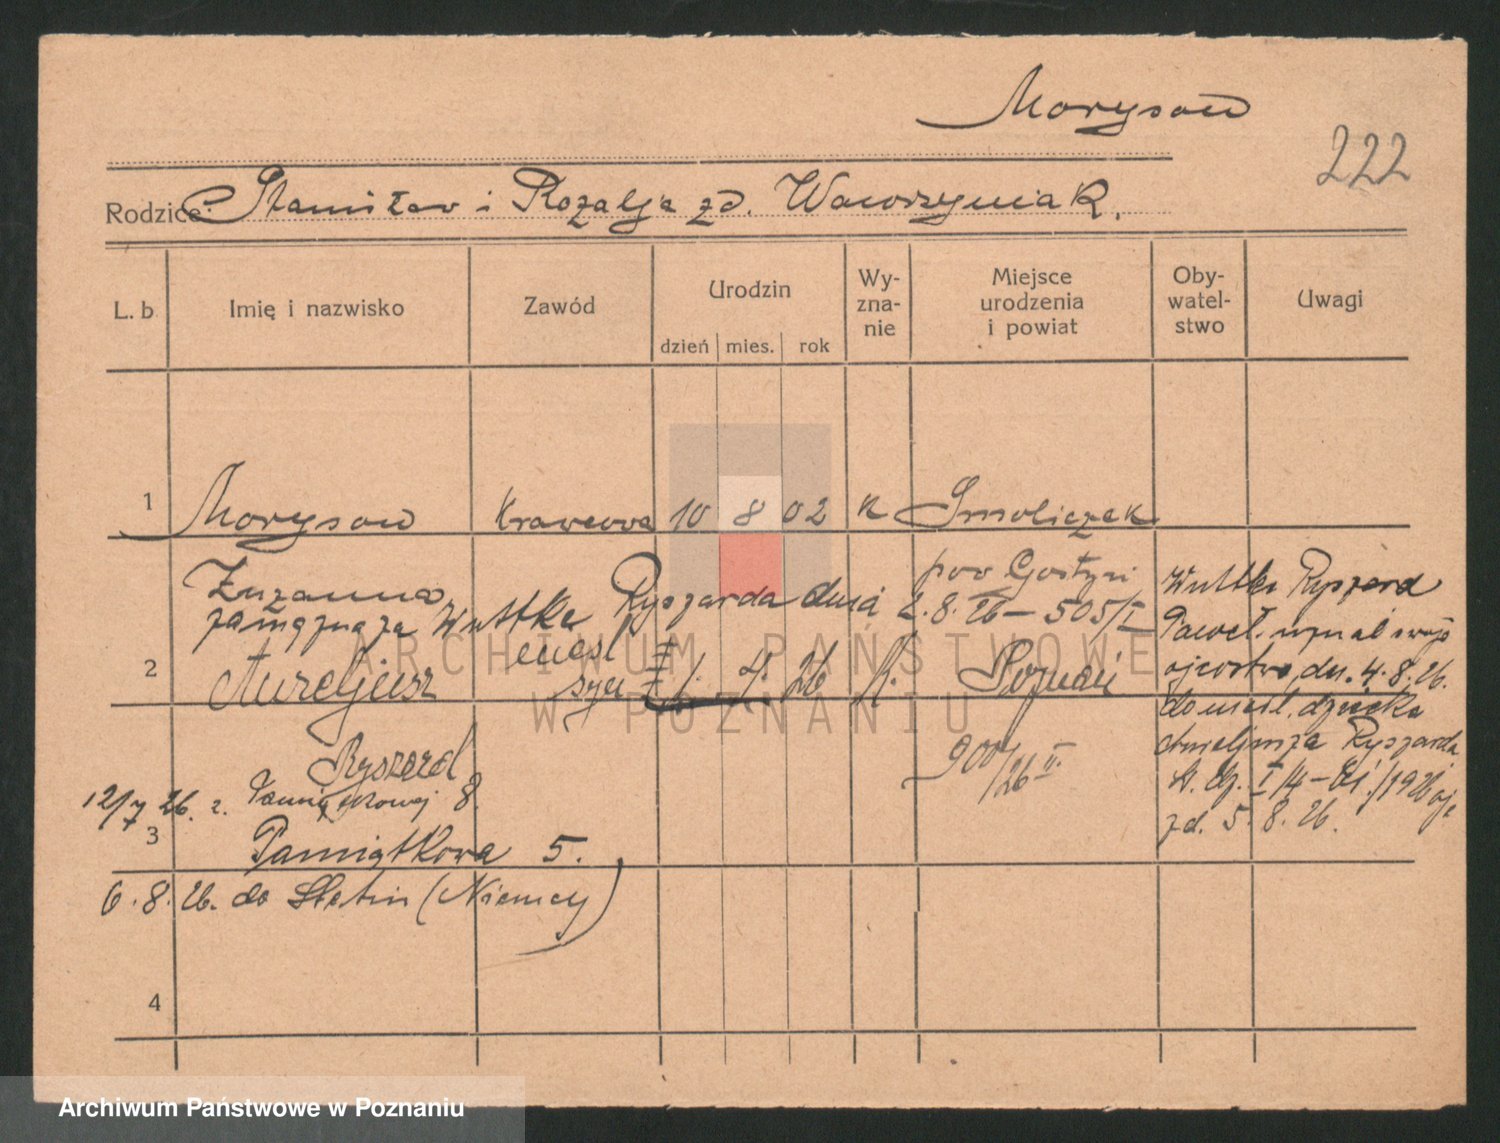 Moryson
222
Rodzice: Stanisław i Rozalja zd. Wawrzyniak.
L. b
Imię i nazwisko
Zawód
Urodzin
dzień mies. rok
Wy-
zna-
nie
Miejsce
urodzenia
i powiat
Oby-
watel-
stwo
Uwagi
1 Moryson Krawcowa 10 8 02 K Smoliczek
Zuzanna pow Gostyń
zamężna za Wuttke Ryszarda dnia 2.8.26 – 505/I
2 Aureljusz syn 1. 4. 26 K. Poznań
Ryszard 900/26 II.
12/7 26. z. 8.
3 Pamiątkowa 5.
6.8.26. do Stetin (Niemcy)
4
Wuttke Ryszard
Paweł. uznał swoje
ojcostwo, dn. 4.8.26.
do dziecka
Aureljusza Ryszarda
zd. 5.8.26.
ARCHIWUM PAŃSTWOWE
W POZNANIU
Archiwum Państwowe w Poznaniu